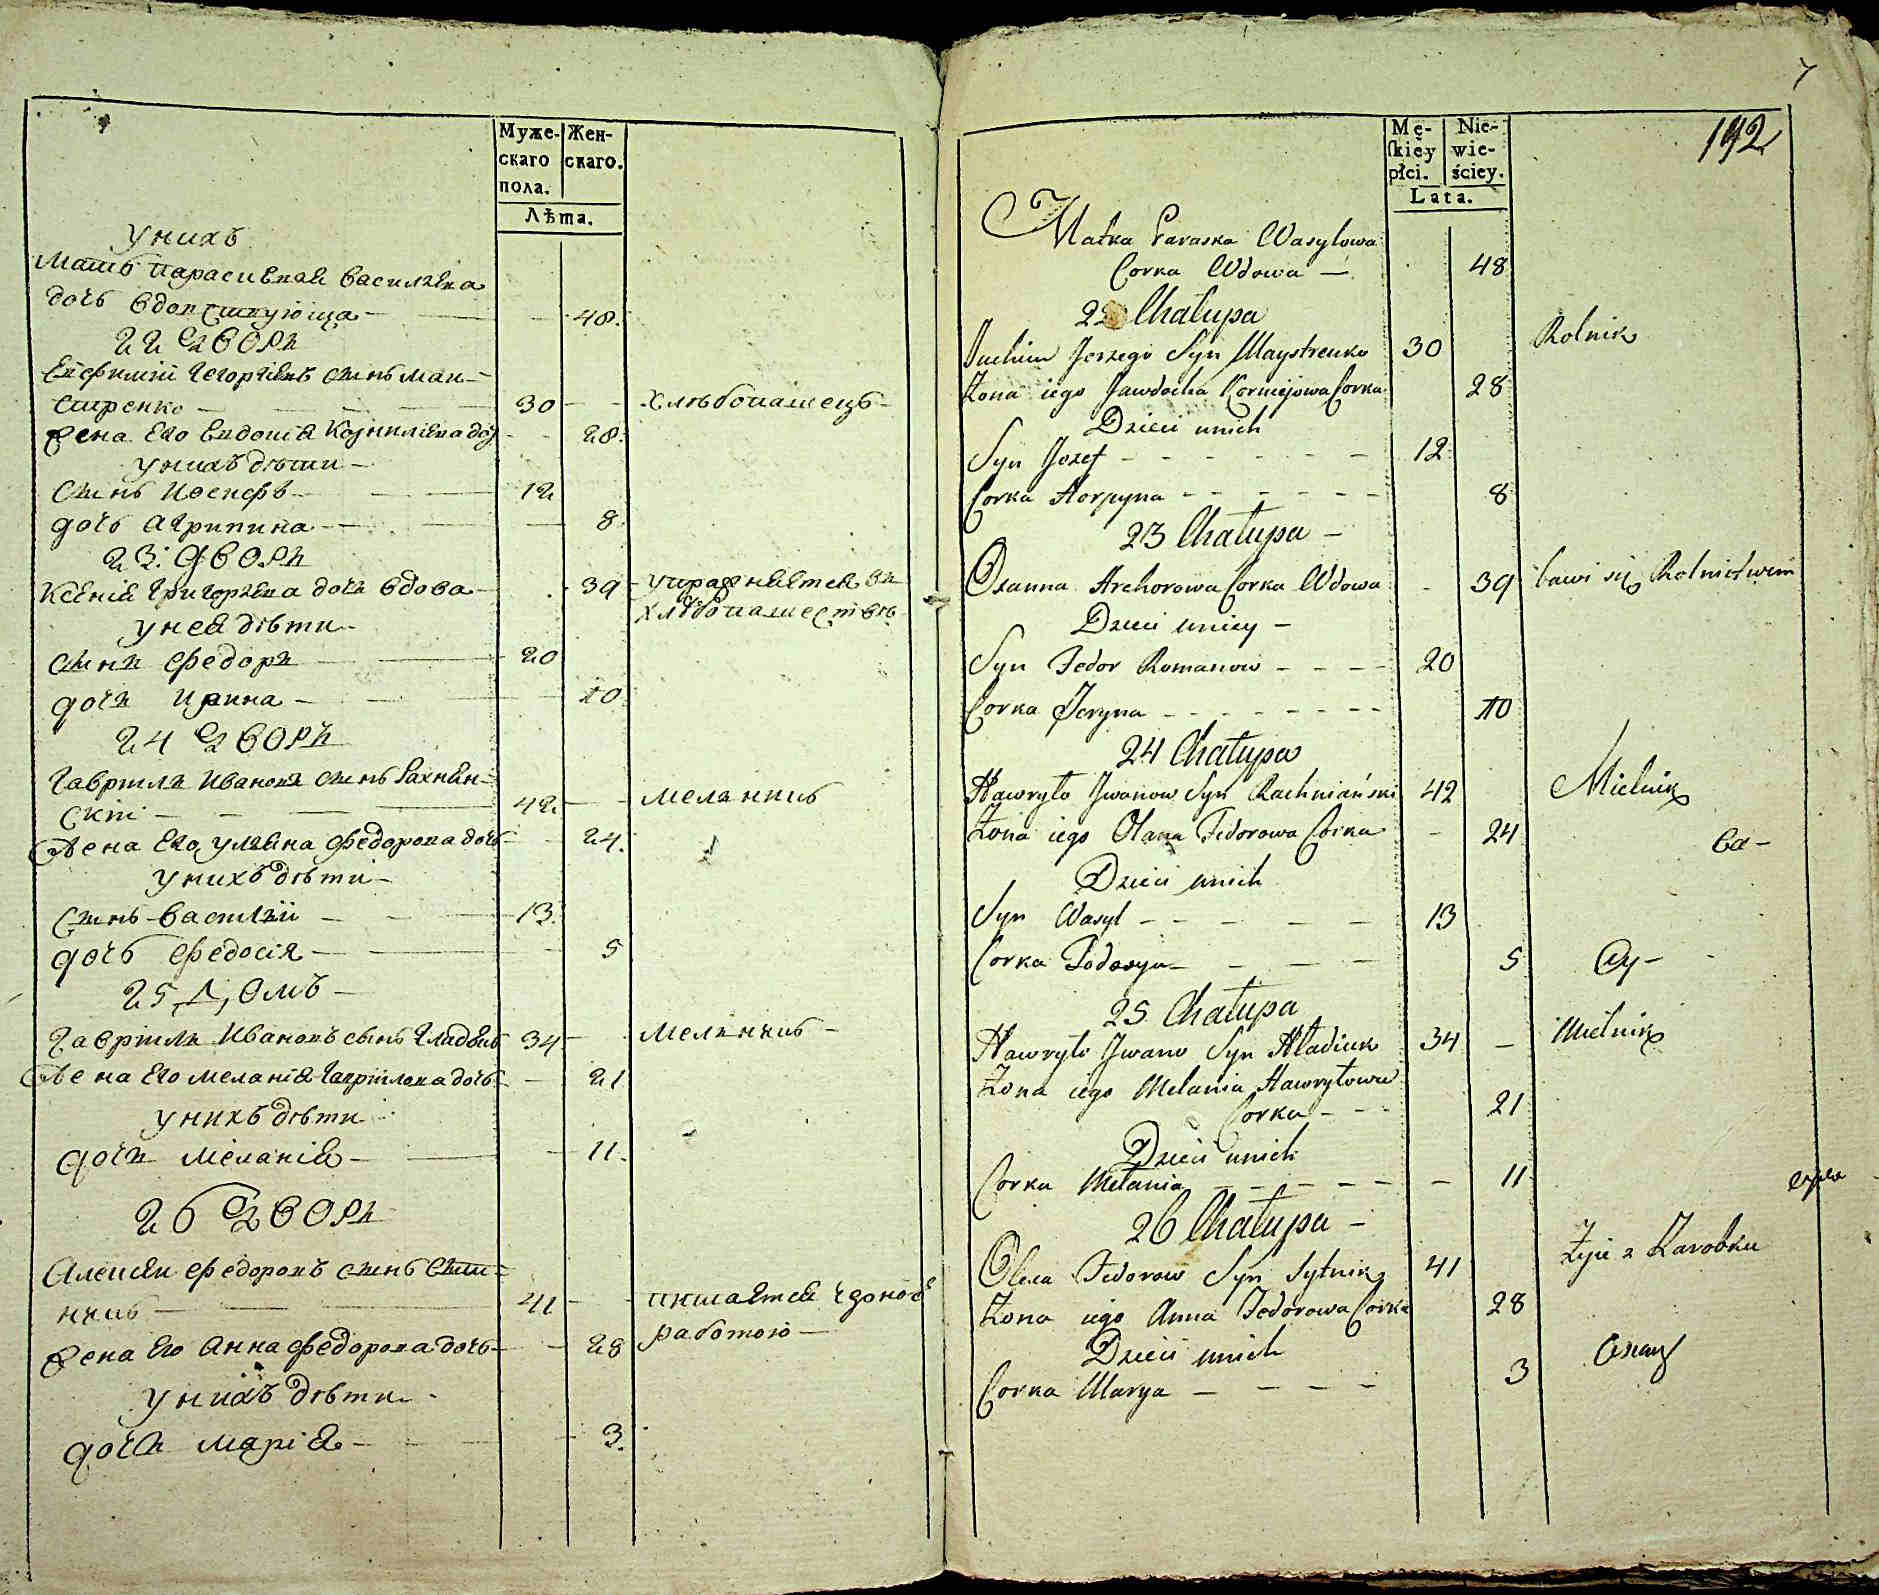 Муже-
скаго
пола.
Жен-
скаго.
Лѣта.
У нихъ
Мать Параскевия Васильева
дочь вдовствующа — 48.
22 дворъ
Евфимий Георгиевъ сынъ Май-
стренко — 30 — хлѣбопашецъ
Жена его Евдокия Корнилиева доч 28.
У нихъ дѣти —
сынъ Иосифъ — 12
дочь Агрипина — 8
23: дворъ
Ксения Григорьева дочь вдова — 39 упражняется въ
хлѣбопашествѣ
У нея дѣти
сынъ Федоръ — 20
дочь Ирина — 10
24 дворъ
Гаврило Ивановъ сынъ Рахнян-
скии — 42. — мельникъ
Жена его Ульяна Федорова дочь 24.
У нихъ дѣти —
Сынъ Василии — 13.
дочь Федосия — 5
25 Домъ —
Гаврило Ивановъ сынъ Гладкий 34 — мельникъ —
Жена его Мелания Гаврилова дочь 21
У нихъ дѣти
дочь Мелания — 11.
26 дворъ
Алексѣи Федоровъ сынъ Сыт-
никъ — 41 — питается
работою —
Жена его Анна Федорова дочь — 28
У нихъ дѣти
дочь Мария — 3.
7
142
Mę-
skiey
płci.
Nie-
wie-
ściey.
Lata.
Matka Paraska Wasylowa
Corka Wdowa — 48
22 Chałupa
Juchim Jerzego Syn Maystrenko 30 Rolnik
Żona iego Jawdocha Korniejowa Corka 28
Dzieci u nich
Syn Jozef — 12
Corka Horpyna — 8
23 Chałupa —
Oxanna Hrehorowa Corka Wdowa 39 bawi się Rolnictwem
Dzieci u niey —
Syn Fedor Romanow — 20
Corka Jeryna — 10
24 Chałupa
Hawryło Jwanow Syn Rachniański 42 Mielnik
Żona iego Olana Fedorowa Corka — 24
Dzieci u nich
Syn Wasyl — 13
Corka Fodosya — 5
25 Chałupa
Hawryło Jwano Syn Hładiuk 34 — Mielnik
Żona iego Melania Hawryłowa
Corka — 21
Dzieci u nich
Corka Melania — 11
26 Chałupa —
Olexa Fedorow Syn Sytnik 41 Żyie z Zarobku
Żona iego Anna Fedorowa Corka 28
Dzieci u nich
Corka Marya — 3